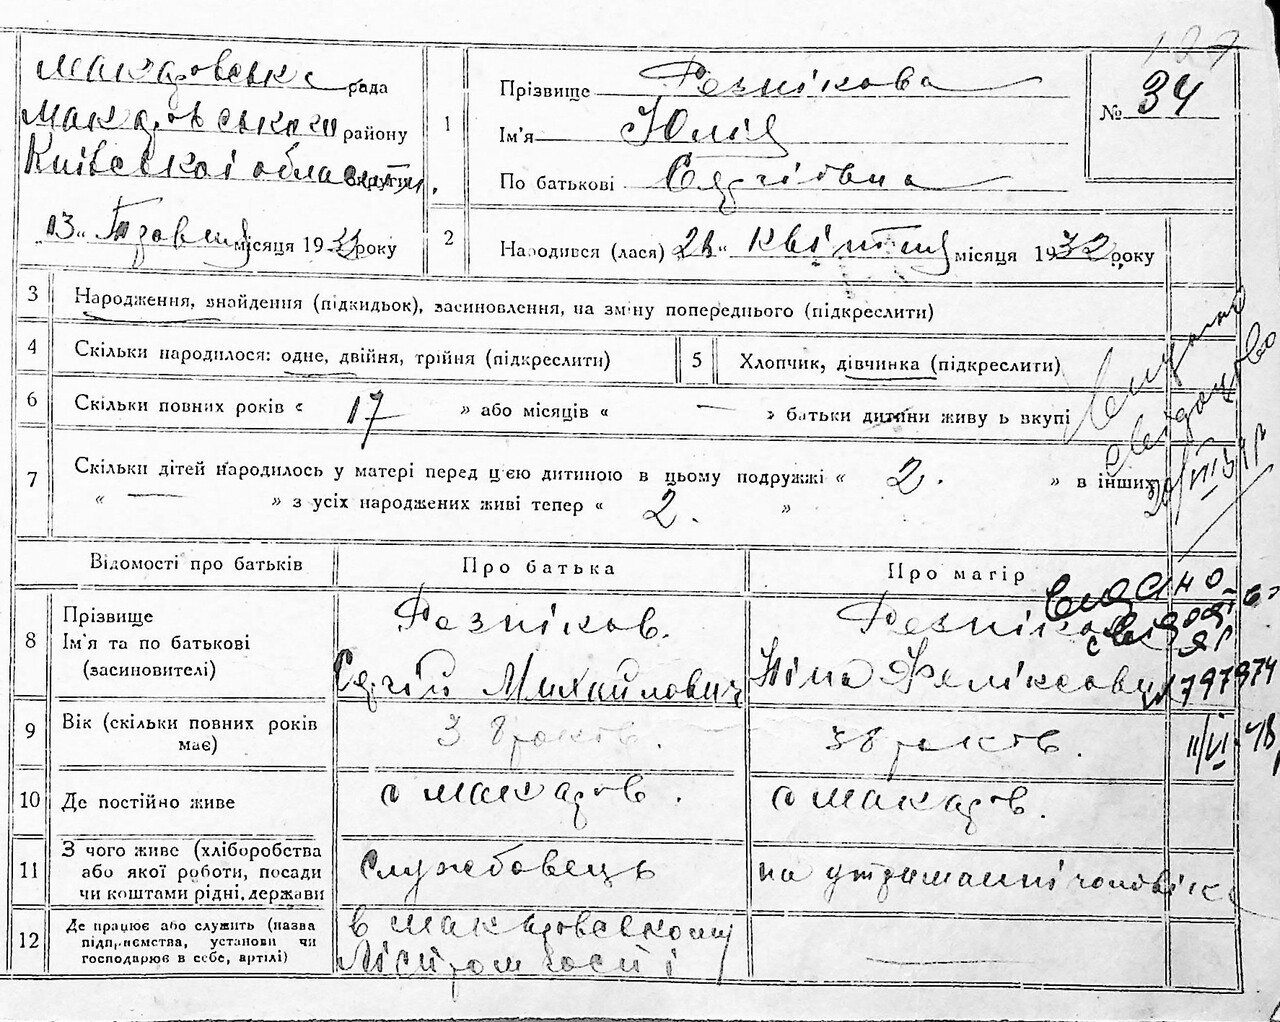 127
Макаровська рада
Макаровського району
Київської області
"13" Травня місяця 1932 року
1
Прізвище Резнікова
Ім'я Юлія
По батькові Сергіївна
№ 34
2
Народився (лася) 28 " квітня місяця 1932 року
3
Народження, знайдення (підкидьок), засиновлення, на зміну попереднього (підкреслити)
4
Скільки народилося: одне, двійня, трійня (підкреслити)
5
Хлопчик, дівчинка (підкреслити)
6
Скільки повних років « 17 » або місяців « — » батьки дитини живуть вкупі
7
Скільки дітей народилось у матері перед цією дитиною в цьому подружжі « 2. » в інших
« — » з усіх народжених живі тепер « 2. »
Відомості про батьків
Про батька
Про матір
8
Прізвище
Ім'я та по батькові
(засиновителі)
Резніков.
Сергій Михайлович
Резнікова
Ніна Феліксовна
видано
свідоц
ЯР
797974
11/VI-48
9
Вік (скільки повних років
має)
38 років.
38 років.
10
Де постійно живе
с Макаров.
с Макаров.
11
З чого живе (хліборобства
або якої роботи, посади
чи коштами рідні, держави
Службовець
на утриманні чоловіка
12
Де працює або служить (назва
підприємства, установи чи
господарює в себе, артілі)
в Макаровському
Ліспромгоспі